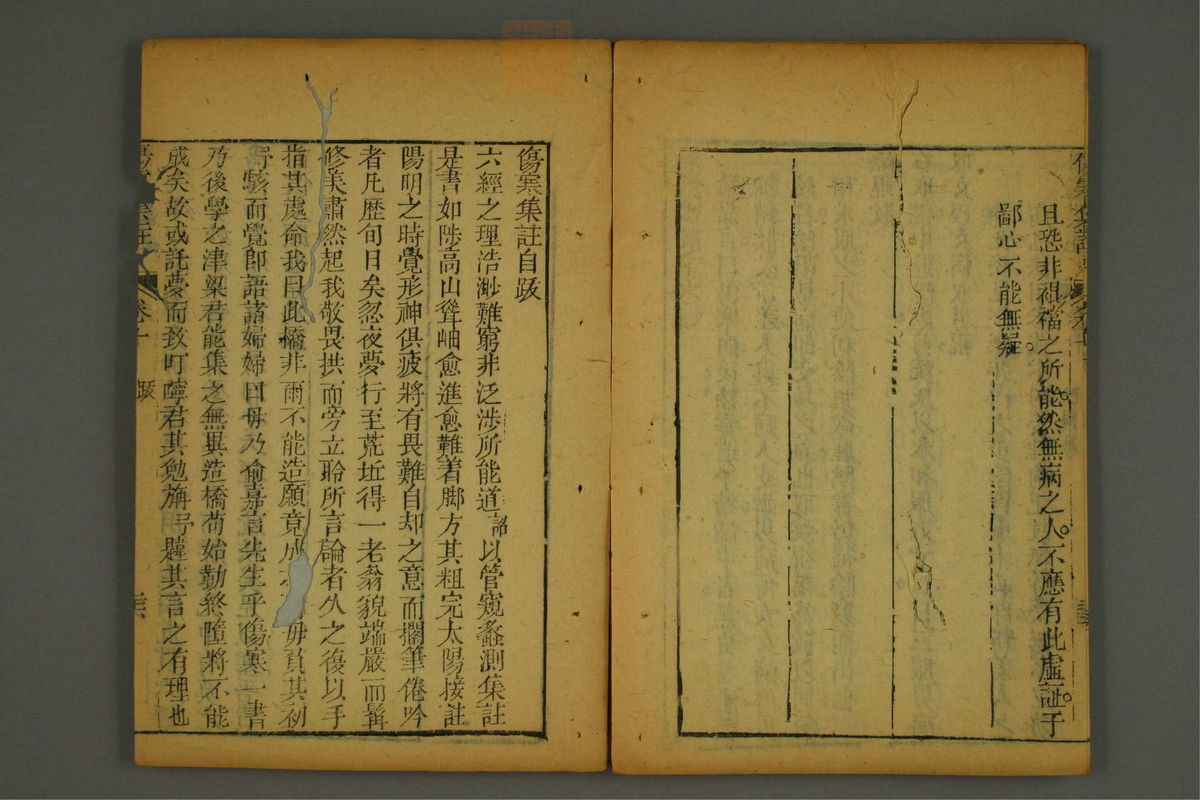 且恐非祖禢之所能然無病之人不應有此虛証于
鄙心不能無疑
傷寒集註自䟦
六經之理浩渺難窮非泛涉所能道詔以管窺蠡測集註
是書如陟高山聳岫愈進愈難着脚方其粗完太陽接註
陽明之時覺形神俱疲將有畏難自却之意而擱筆倦吟
者凡歷旬日矣忽夜夢行至荒坵得一老翁貌端嚴而髯
修美肅然起我敬畏拱而旁立聆所言論者久之復以手
指其處命我曰此橋非雨不能造願竟成毋負其初
駭而覺即語諸婦婦曰毋乃俞嘉言先生乎傷寒一書
乃後學之津梁君能集之無異造橋苟始勤終隳將不能
成矣故或託夢而致叮嚀君其勉旃韙其言之有理也
集註
卷十
䟦